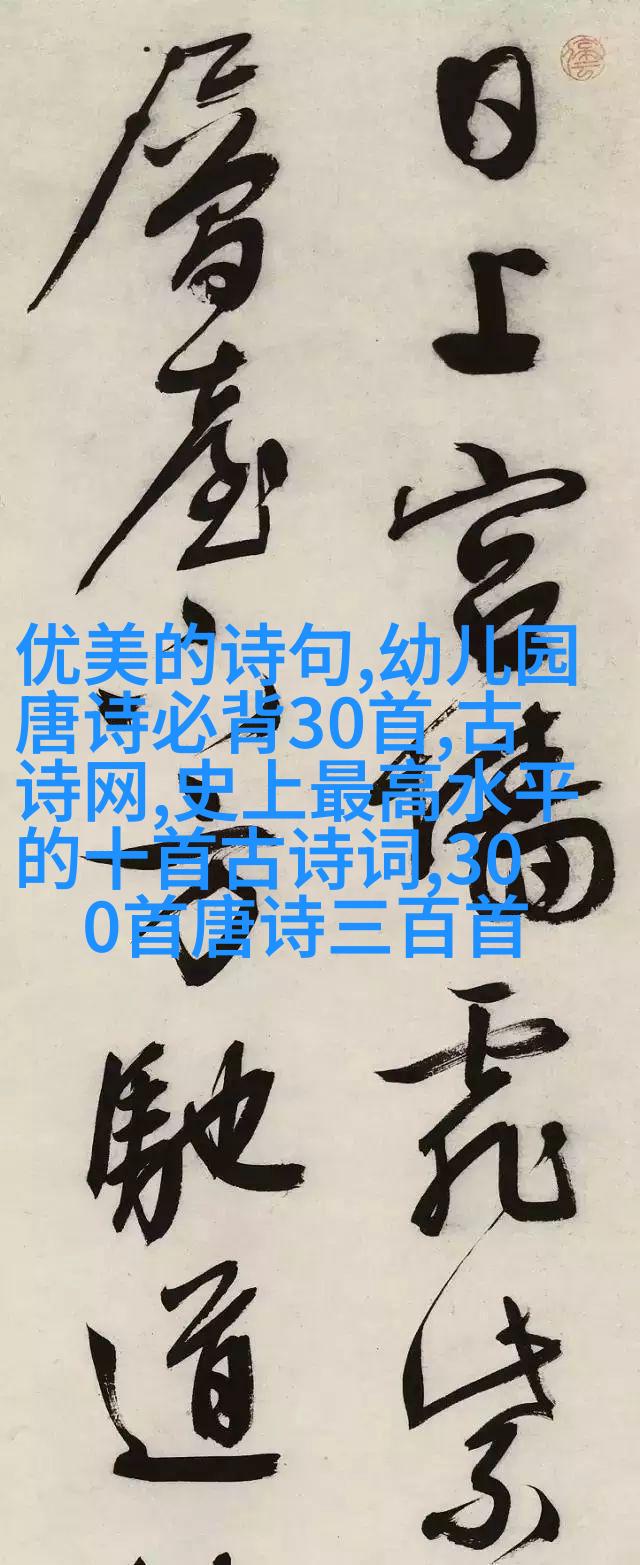 日上宫墻飛紫
層臺下方馳道
优美的诗句,幼儿园
唐诗必背30首,古
诗网,史上最高水平
的十首古诗词,30
0首唐诗三百首